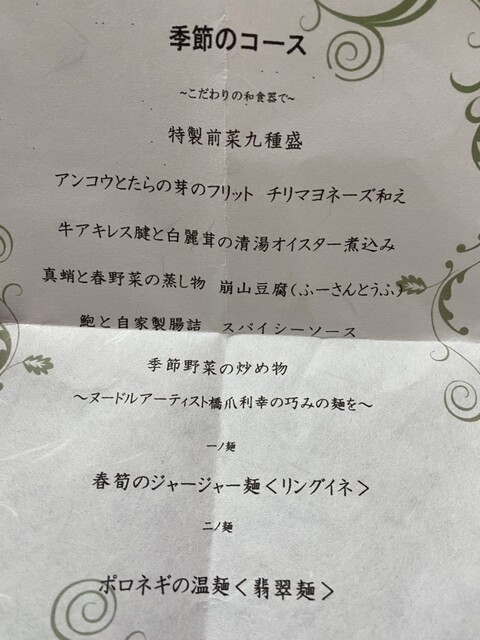 季節のコース
~こだわりの和食器で~
特製前菜九種盛
アンコウとたらの芽のフリット チリマヨネーズ和え
牛アキレス腱と白麗茸の清湯オイスター煮込み
真蛸と春野菜の蒸し物 崩山豆腐(ふーさんとうふ)
鮑と自家製腸詰 スパイシーソース
季節野菜の炒め物
～ヌードルアーティスト橋爪利幸の巧みの麺を～
一ノ麺
春筍のジャージャー麺<リングイネ>
二ノ麺
ポロネギの温麺<翡翠麺>